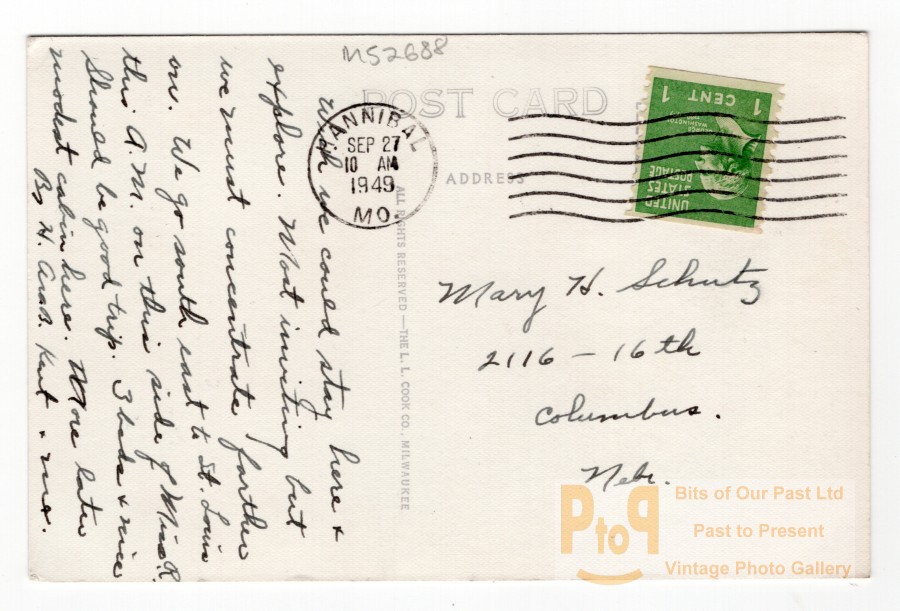 MS2688
POST CARD
HANNIBAL
SEP 27
10 AM
1949
MO.
1 CENT 1
GEORGE
WASHINGTON
UNITED
STATES
POSTAGE
ADDRESS
ALL RIGHTS RESERVED — THE L. L. COOK CO., MILWAUKEE
Wish we could stay here &
explore. Most inviting but
we must concentrate farther
on. We go south east to St. Louis
this A.M. on this side of Miss. R.
Should be good trip. 3 beds & nice
modest cabin here. More later
By H.
Mary H. Schutz
2116 - 16th
Columbus.
Nebr.
PtoP
Bits of Our Past Ltd
Past to Present
Vintage Photo Gallery